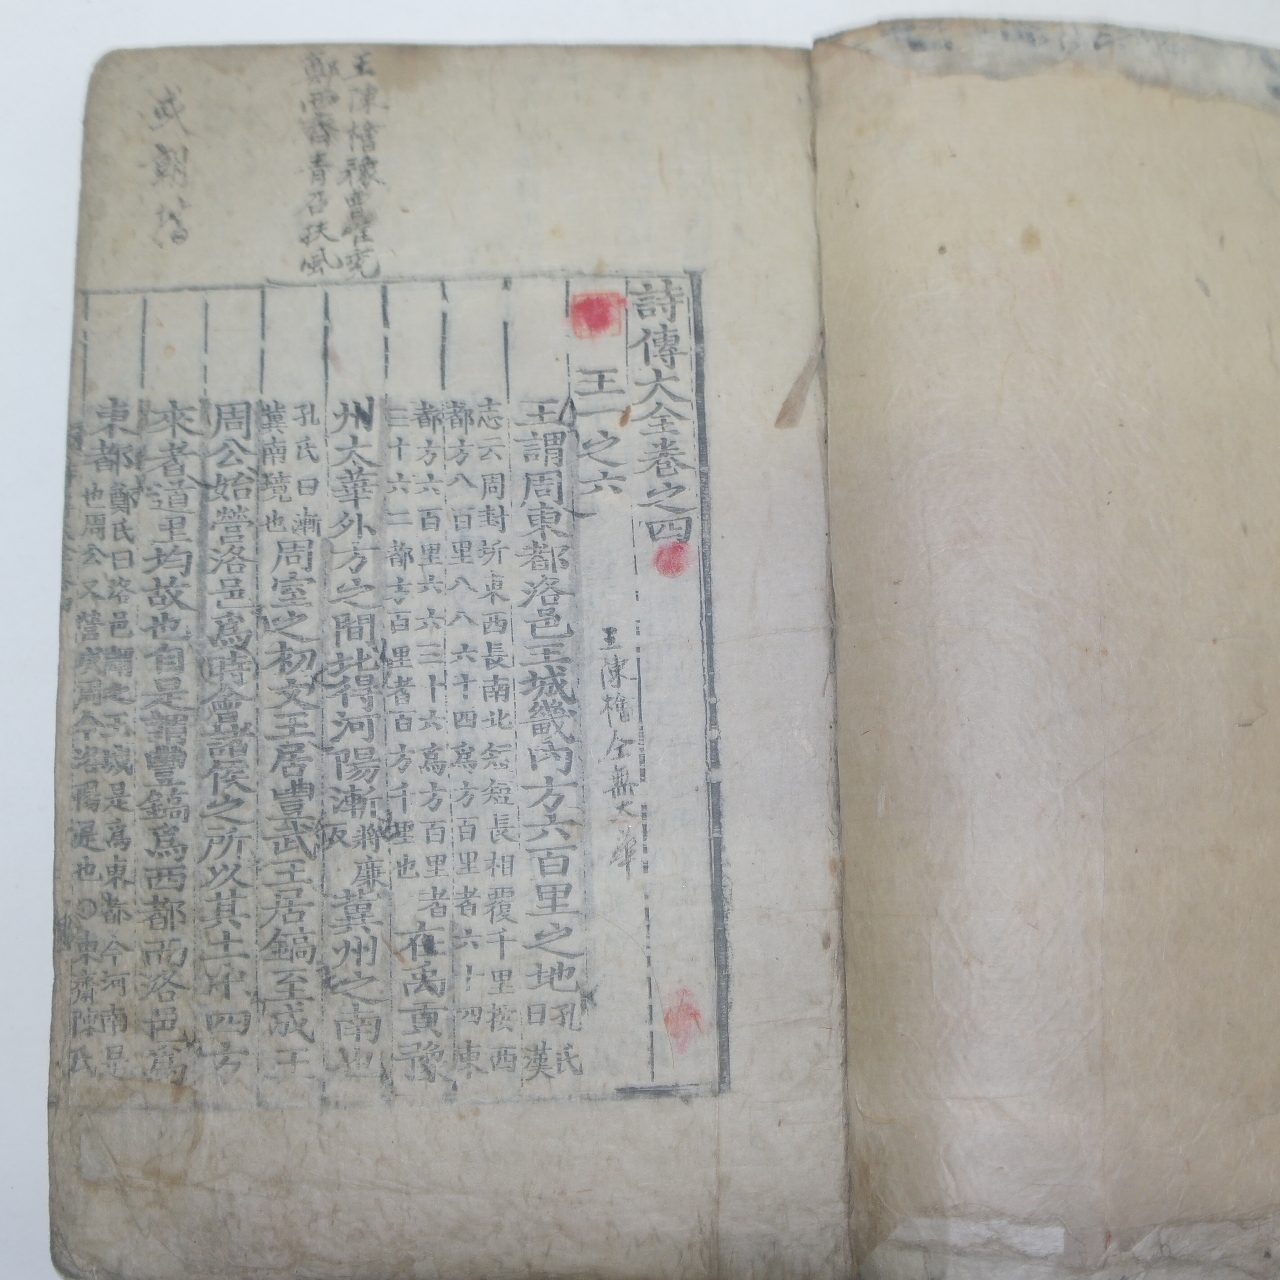 詩傳大全卷之四
王一之六
王陳檜
王謂周東都洛邑王城畿內方六百里之地孔氏曰漢
志云周封圻東西長南北短短長相覆千里按西
都方八百里八八六十四爲方百里者六十四東
都方六百里六六三十六爲方百里者
三十六二都方百里者百方千里也
在禹貢豫
州太華外方之間北得河陽漸將廉反冀州之南也
孔氏曰漸
冀南境也
周室之初文王居豐武王居鎬至成王
周公始營洛邑爲時會諸侯之所以其土中四方
來者道里均故也自是謂豐鎬爲西都而洛邑爲
東都
鄭氏曰洛邑謂之王城是爲東都今河南是
也周公又營成周今洛陽是也○東齋陳氏
王陳檜豫
鄭西
青召扶風